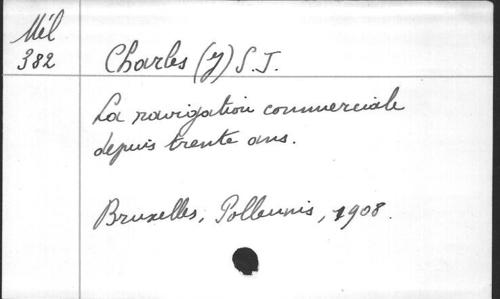 Mél
382
Charles (J) S.J.
La navigation commerciale
depuis trente ans.
Bruxelles, Polleunis, 1908.